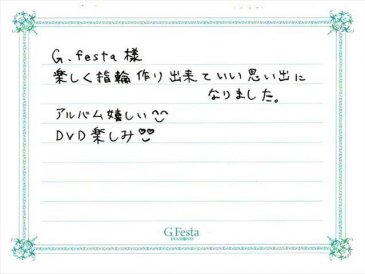 G.festa 様
楽しく指輪作り出来ていい思い出に
なりました。
アルバム嬉しい
DVD楽しみ♡♡
G.Festa
DIAMOND